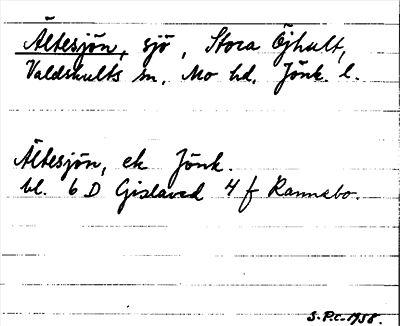 Ältesjön, sjö, Stora Öjhult,
Valdshults sn, Mo hd, Jönk. l.
Ältesjön, ek Jönk.
bl. 6 D Gislaved 4 f Rannebo.
S. P.C. 1958.